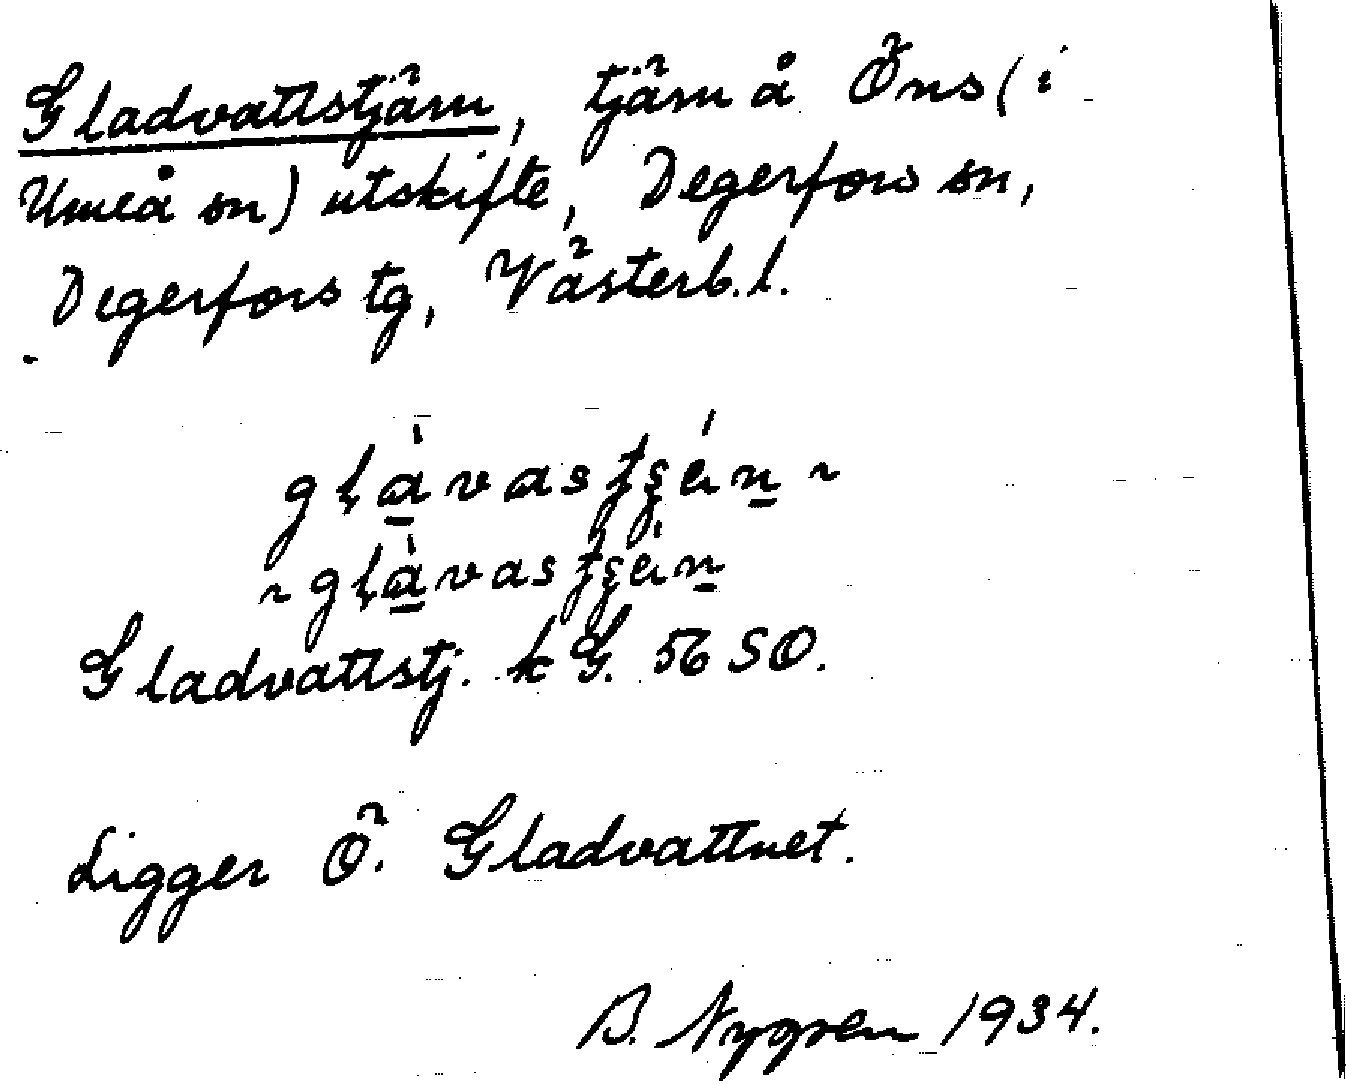 Gladvattstjärn, tjärn å Öns (i
Umeå sn) utskifte, Degerfors sn,
Degerfors tg, Västerb. l.
glàvastʂén ~
~ glàvastʂén
Gladvattstj. k G. 56 SO.
Ligger Ö. Gladvattnet.
B. Nygren 1934.